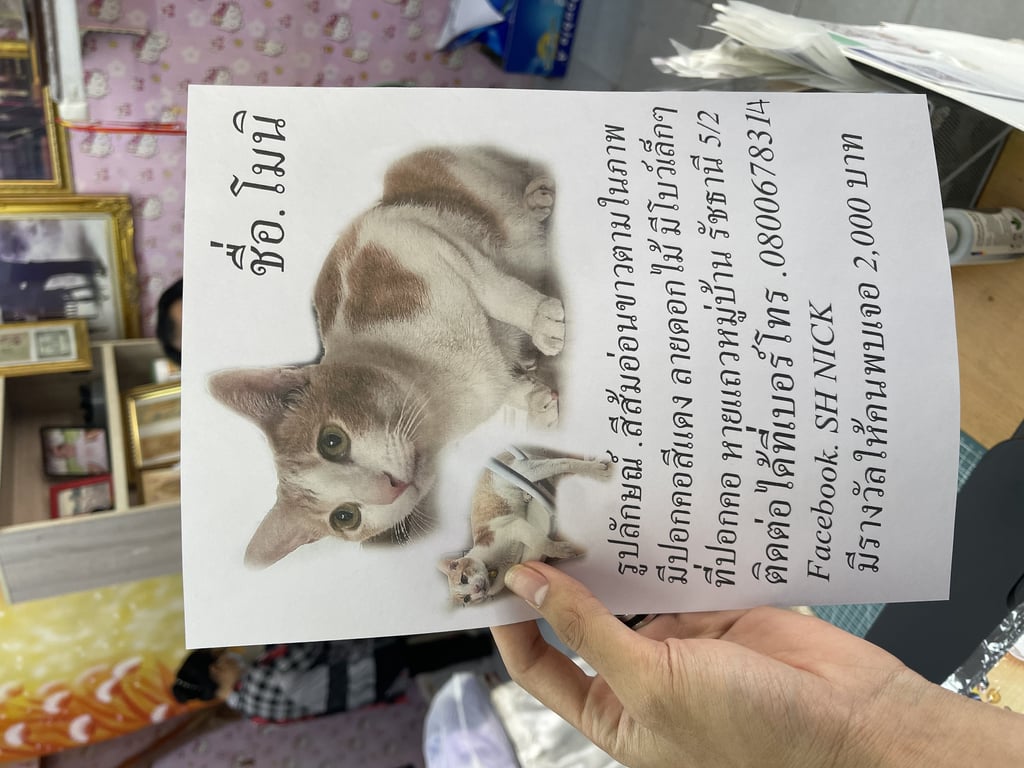 ชื่อ.โมนิ
รูปลักษณ์ .สีส้มอ่อนขาวตามในภาพ
มีปอกคอสีแดง ลายดอกไม้ มีโบว์เล็กๆ
ที่ปอกคอ หายแถวหมู่บ้าน รัชธานี 5/2
ติดต่อได้ที่เบอร์โทร .0800678314
Facebook. SH NICK
มีรางวัลให้คนพบเจอ 2,000 บาท